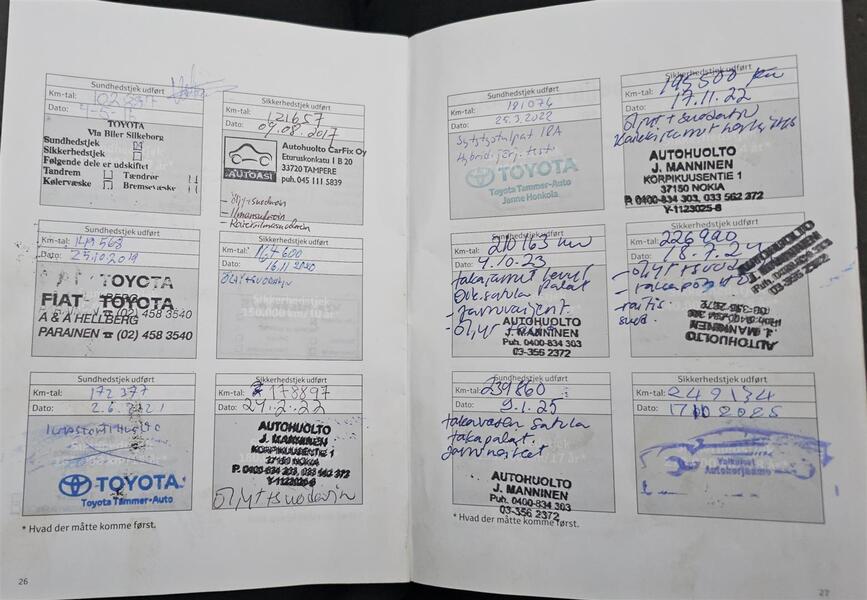 Sundhedstjek udført
Km-tal: 102 837
Dato:
TOYOTA
Via Biler Silkeborg
Sundhedstjek
Sikkerhedstjek
Følgende dele er udskiftet
Tandrem Tændrør
Kølervæske Bremsevæske
Sikkerhedstjek udført
Km-tal: 121657
Dato: 09.08.2017
Autohuolto CarFix Oy
Eturuskonkatu 1 B 20
33720 TAMPERE
puh. 045 111 5839
AUTOASI
- öljyt+suodatin
- Ilmansuodatin
- Raitisilmasuodatin
Sundhedstjek udført
Km-tal: 149563
Dato: 25.10.2019
TOYOTA
FIAT TOYOTA
A & A HELLBERG
PARAINEN ☎ (02) 458 3540
(02) 458 3540
Sikkerhedstjek udført
Km-tal: 164600
Dato: 16.11.2020
Öljyt+suodatin
Sikkerhedstjek
150.000 km/10 år*
Sundhedstjek udført
Km-tal: 172 377
Dato: 2.6.2021
TOYOTA
Toyota Tammer-Auto
Sikkerhedstjek udført
Km-tal: 178897
Dato: 24.2.22
AUTOHUOLTO
J. MANNINEN
KORPIKUUSENTIE 1
37150 NOKIA
P. 0400-834 303, 033 562 372
Y-1123025-8
Öljyt+suodatin
* Hvad der måtte komme først.
26
Sundhedstjek udført
Km-tal: 181076
Dato: 25.3.2022
Sytytystulpat 18A
Hybridjärj. testi
TOYOTA
Toyota Tammer-Auto
Janne Honkola
Sikkerhedstjek udført
Km-tal: 195500 km
Dato: 17.11.22
Öljyt+suodatin
AUTOHUOLTO
J. MANNINEN
KORPIKUUSENTIE 1
37150 NOKIA
P. 0400-834 303, 033 562 372
Y-1123025-8
Sundhedstjek udført
Km-tal: 210163 km
Dato: 4.10.23
- Jarrunest.
AUTOHUOLTO
J. MANNINEN
Puh. 0400-834 303
03-356 2372
Sikkerhedstjek udført
Km-tal: 226990
Dato: 18.7.24
- öljyt+suod
- raitis.
suod.
AUTOHUOLTO
J. MANNINEN
Puh. 0400-834 303
03-356 2372
AUTOHUOLTO
J. MANNINEN
Sundhedstjek udført
Km-tal: 239860
Dato: 9.1.25
takavasen satula
takapalat.
Jarrunesteet
AUTOHUOLTO
J. MANNINEN
Puh. 0400-834 303
03-356 2372
Sikkerhedstjek udført
Km-tal: 249134
Dato: 17.10.2025
Autokorjaamo
* Hvad der måtte komme først.
27